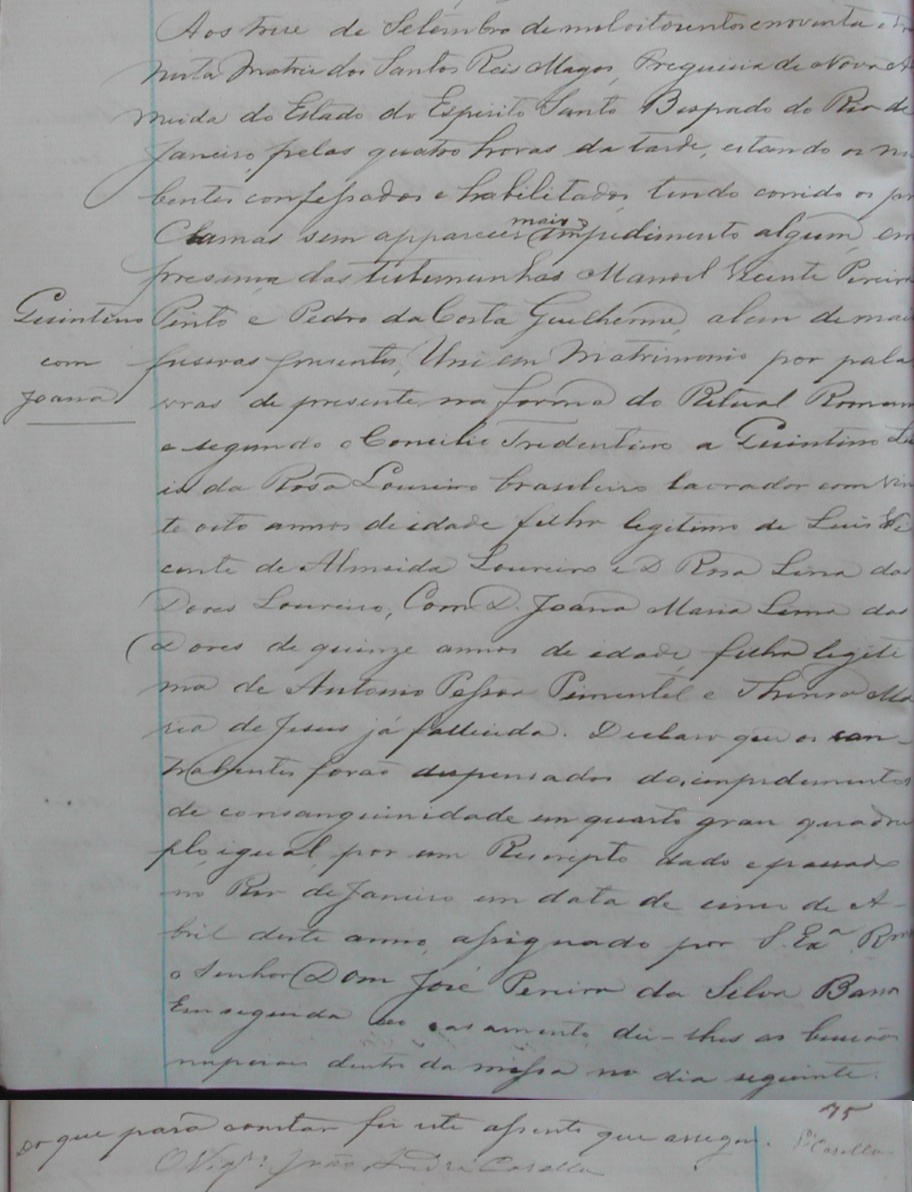 Aos treze de Setembro de mil oitocentos e noventa e
nesta Matriz dos Santos Reis Magos, Freguisia de Nova A
meida do Estado do Espirito Santo Bispado do Rio de
Janeiro, pelas quatro horas da tarde, estando os nu
bentes confessados e habilitados tendo corrido os
Clamas sem apparecer mais impedimento algum, em
presença das testemunhas Manoel Vicente Pereira
Pinto e Pedro da Costa Guilherme, alem de mais
pessoas presentes, Uni em Matrimonio por pala
vras de presente na forma do Ritual Roman
e segundo o Concilio Tredentino a Quintino Lu
is da Rosa Loureiro brasileiro lavrador com vin
te oito annos de idade filho legitimo de Luis Vi
cente de Almeida Loureiro e D Rosa Lima das
Dores Loureiro, Com D. Joana Maria Lima das
Dores de quinze annos de idade, filha legiti
ma de Antonio Pessoa Pimentel e Thereza Ma
ria de Jesus já fallecida. Declaro que os con-
trahentes forão dispensados do impedimento
de consanguinidade em quarto grau quadru
plo igual, por um Rescripto dado e passado
no Rio de Janeiro em data de cinco de A-
bril deste anno, assignado por S. Exª Rma
o Senhor Dom José Pereira da Silva Barros
Em seguida ao casamento dei-lhes as bençãos
nupciais dentro da missa no dia seguinte.
Quintino
com
Joana
75
Do que para constar fiz este assento que assigno.
O Vigº João André Casella
Pe Casella